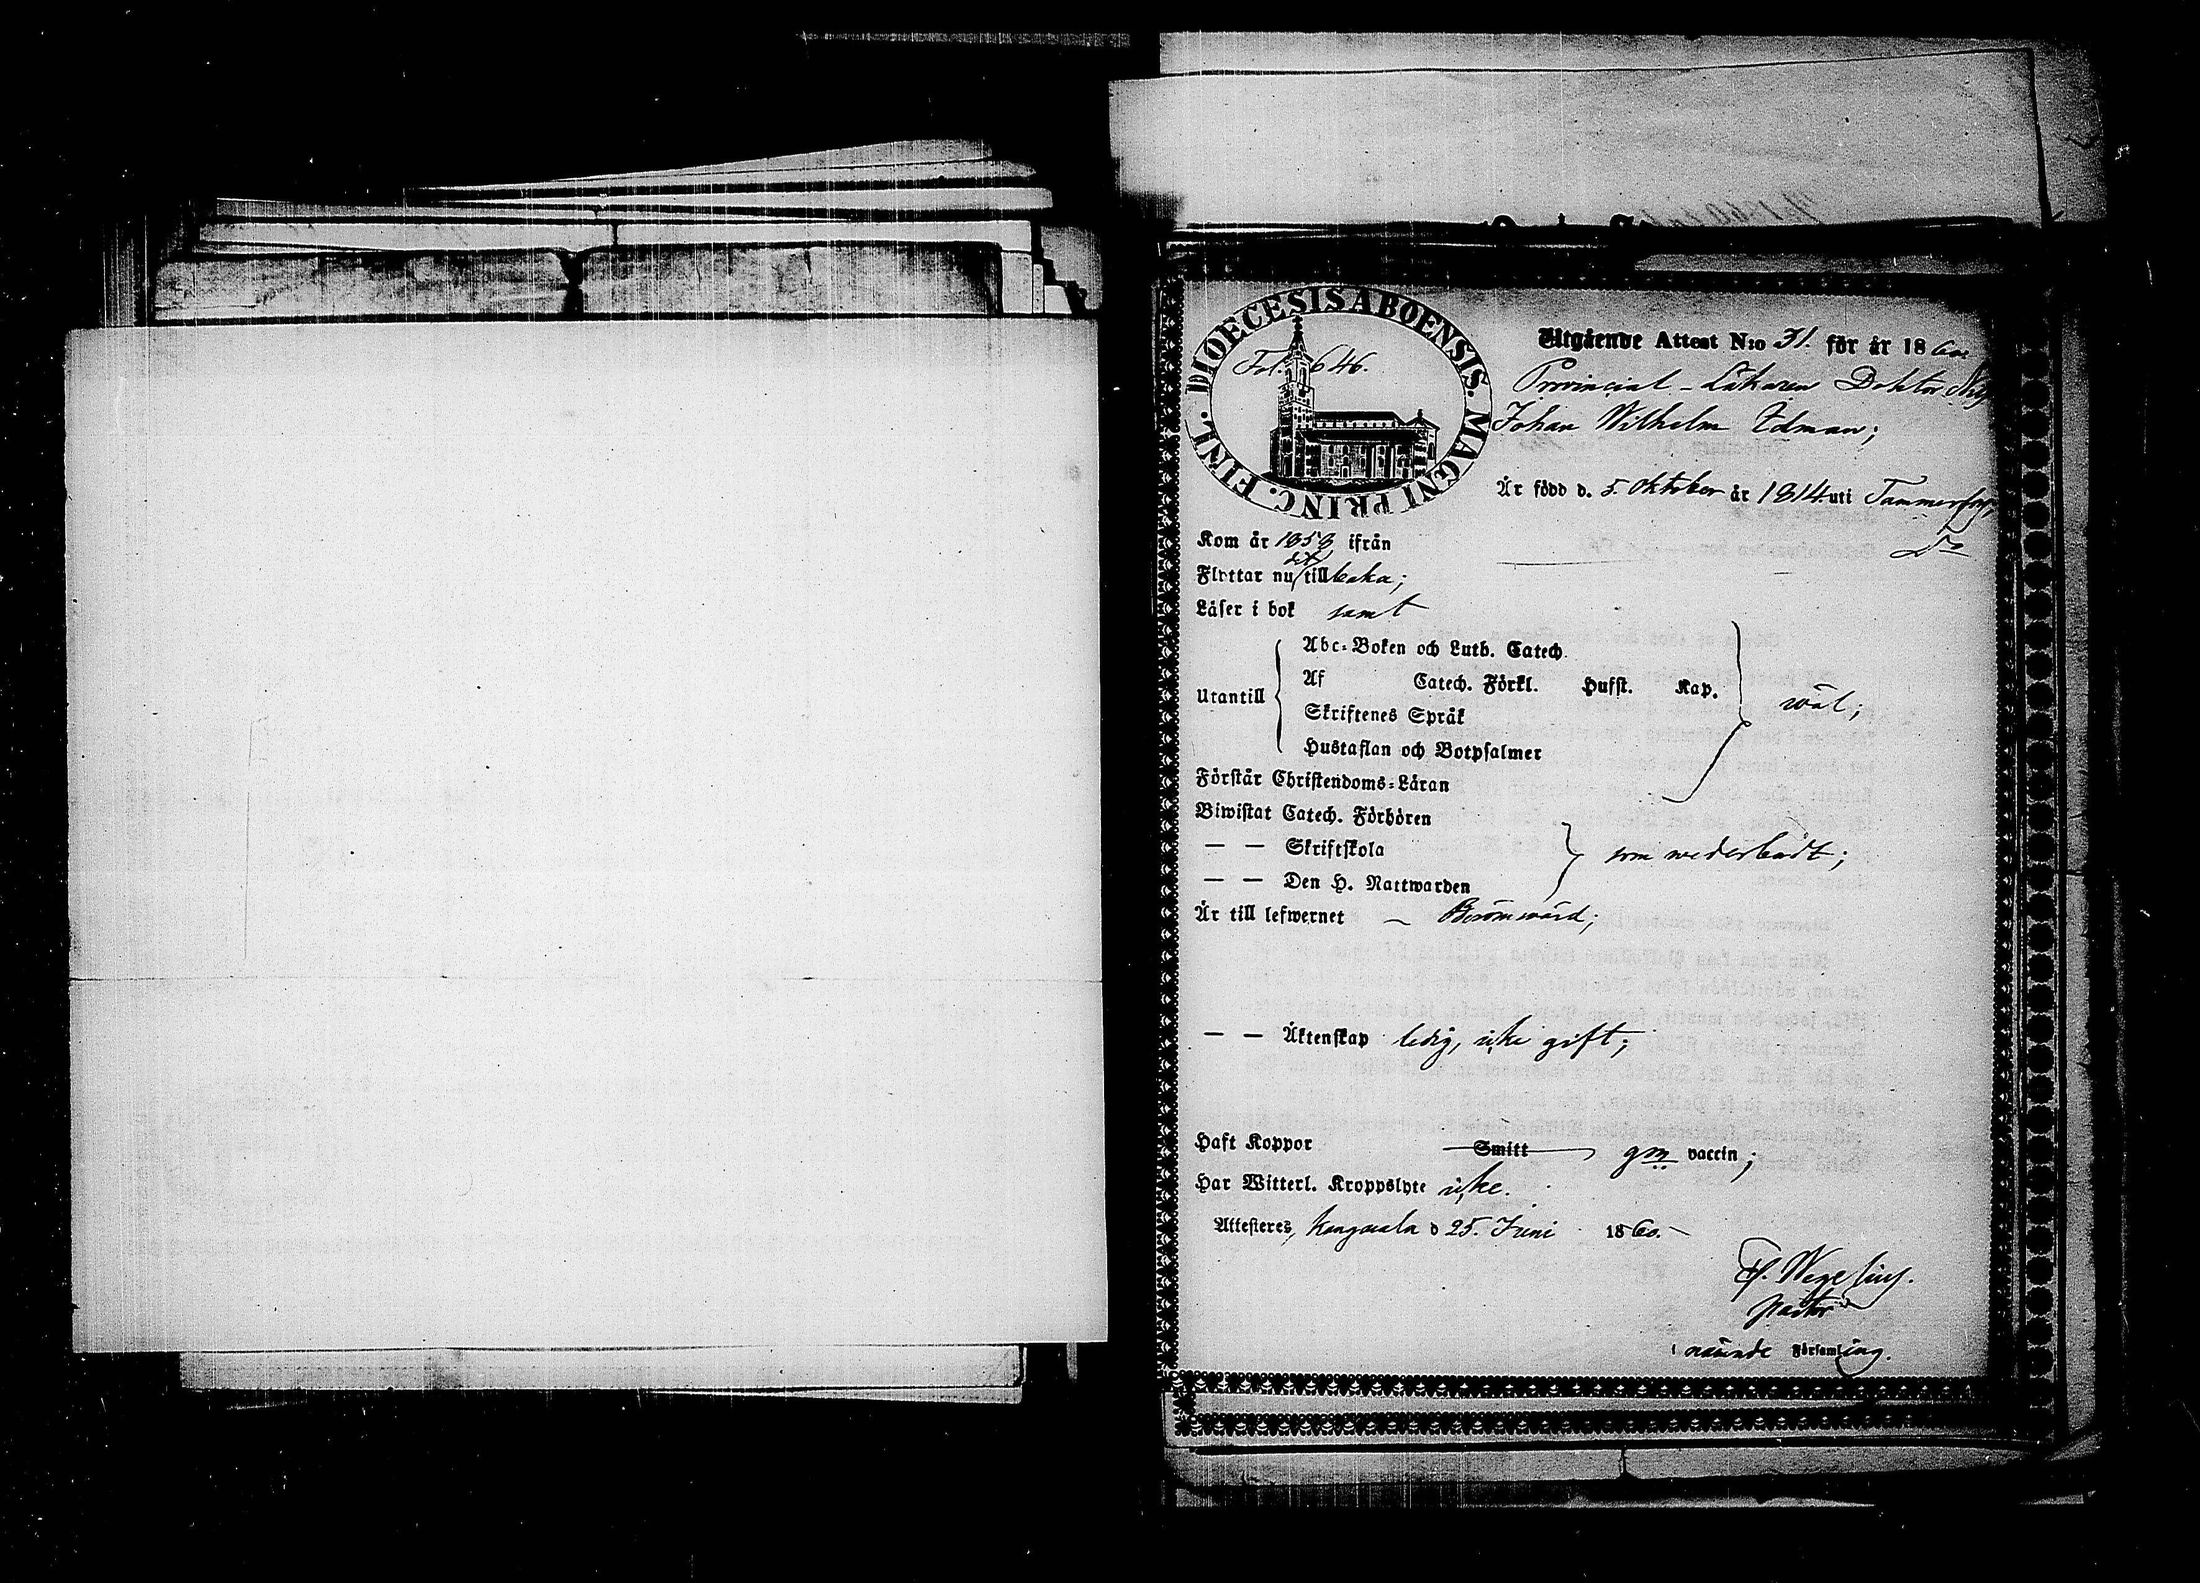 DIOECESIS ABOENSIS. MAGNI PRINC. FINL.
Fol. 646.
Utgående Attest N:o 31. för år 1860.
Provincial-Läkaren Doktor
Johan Wilhelm Edman;
Är född d. 5. Oktober år 1814. uti Tammerfors,
Kom år 1858 ifrån Do
Flyttar nu dit tillbaka;
Läser i bok samt
Utantill
Abc-Boken och Luth. Catech.
Af Catech. Förkl. Hufst. Kap.
Skriftenes Språk
Hustaflan och Botpsalmer
Förstår Christendoms-Läran
wäl;
Biwistat Catech. Förhören
— — Skriftskola
— — Den H. Nattwarden
som wederbödt;
Är till lefwernet — Berömwärd;
— — Äktenskap ledig, icke gift;
Haft Koppor Smitt gm vaccin;
Har Witterl. Kroppslyte icke.
Attesteres, Kangasala d 25. Juni 1860.
Wegelius.
Pastor
i nämnde Församling.